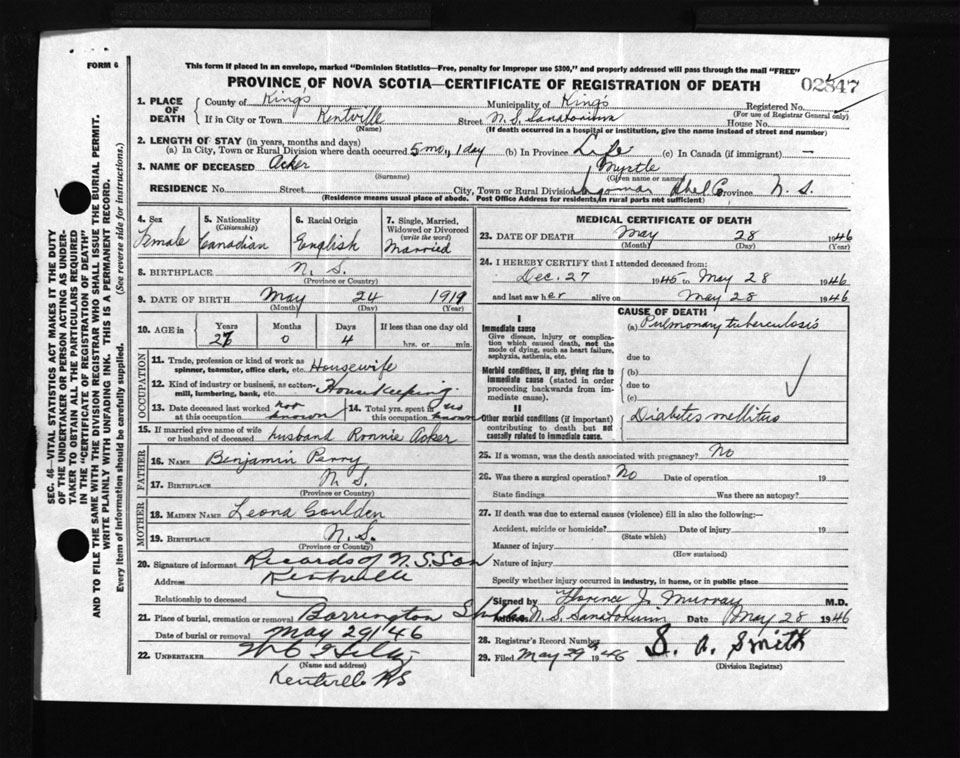 FORM 6
This form if placed in an envelope, marked "Dominion Statistics—Free, penalty for improper use $300," and properly addressed will pass through the mail "FREE"
PROVINCE OF NOVA SCOTIA—CERTIFICATE OF REGISTRATION OF DEATH
02847
1. PLACE OF DEATH
County of Kings Municipality of Kings Registered No.
(For use of Registrar General only)
If in City or Town Kentville Street N. S. Sanatorium House No.
(Name) (If death occurred in a hospital or institution, give the name instead of street and number)
2. LENGTH OF STAY (in years, months and days)
(a) In City, Town or Rural Division where death occurred 5 mo, 1 day (b) In Province Life (c) In Canada (if immigrant) —
3. NAME OF DECEASED Acker Myrtle
(Surname) (Given name or names)
RESIDENCE No. Street City, Town or Rural Division Ingomar Shel Co Province N. S.
(Residence means usual place of abode. Post Office Address for residents in rural parts not sufficient)
4. Sex Female
5. Nationality (Citizenship) Canadian
6. Racial Origin English
7. Single, Married, Widowed or Divorced (write the word) Married
8. BIRTHPLACE N. S.
(Province or Country)
9. DATE OF BIRTH May 24 1919
(Month) (Day) (Year)
10. AGE in Years Months Days If less than one day old
0 4 hrs. or min.
OCCUPATION
11. Trade, profession or kind of work as spinner, teamster, office clerk, etc. Housewife
12. Kind of industry or business, as cotton-mill, lumbering, bank, etc. Housekeeping
13. Date deceased last worked at this occupation not known
14. Total yrs. spent in this occupation
15. If married give name of wife or husband of deceased husband Ronnie Acker
FATHER
16. NAME Benjamin Perry
17. BIRTHPLACE N. S.
(Province or Country)
MOTHER
18. MAIDEN NAME Leona Goulden
19. BIRTHPLACE N. S.
(Province or Country)
20. Signature of informant Records of N. S. San
Address Kentville
Relationship to deceased
21. Place of burial, cremation or removal Barrington
Date of burial or removal May 29/46
22. UNDERTAKER
(Name and address)
Kentville NS
MEDICAL CERTIFICATE OF DEATH
23. DATE OF DEATH May 28 1946
(Month) (Day) (Year)
24. I HEREBY CERTIFY that I attended deceased from:
Dec. 27 1945 to May 28 1946
and last saw her alive on May 28 1946
CAUSE OF DEATH
I
Immediate cause
Give disease, injury or complication which caused death, not the mode of dying, such as heart failure, asphyxia, asthenia, etc.
(a) Pulmonary tuberculosis
due to
Morbid conditions, if any, giving rise to immediate cause (stated in order proceeding backwards from immediate cause).
(b)
due to
(c)
II
Other morbid conditions (if important) contributing to death but not causally related to immediate cause.
Diabetes mellitus
25. If a woman, was the death associated with pregnancy? No
26. Was there a surgical operation? No Date of operation 19
State findings Was there an autopsy?
27. If death was due to external causes (violence) fill in also the following:—
Accident, suicide or homicide? Date of injury 19
(State which)
Manner of injury
(How sustained)
Nature of injury
Specify whether injury occurred in industry, in home, or in public place
Signed by Florence J. Murray M.D.
Address N. S. Sanatorium Date May 28 1946
28. Registrar's Record Number
29. Filed May 29th 1946 S. A. Smith
(Division Registrar)
SEC. 46—VITAL STATISTICS ACT MAKES IT THE DUTY
OF THE UNDERTAKER OR PERSON ACTING AS UNDER-
TAKER TO OBTAIN ALL THE PARTICULARS REQUIRED
IN THE "CERTIFICATE OF REGISTRATION OF DEATH"
AND TO FILE THE SAME WITH THE DIVISION REGISTRAR WHO SHALL ISSUE THE BURIAL PERMIT.
WRITE PLAINLY WITH UNFADING INK. THIS IS A PERMANENT RECORD.
Every item of information should be carefully supplied. (See reverse side for instructions.)